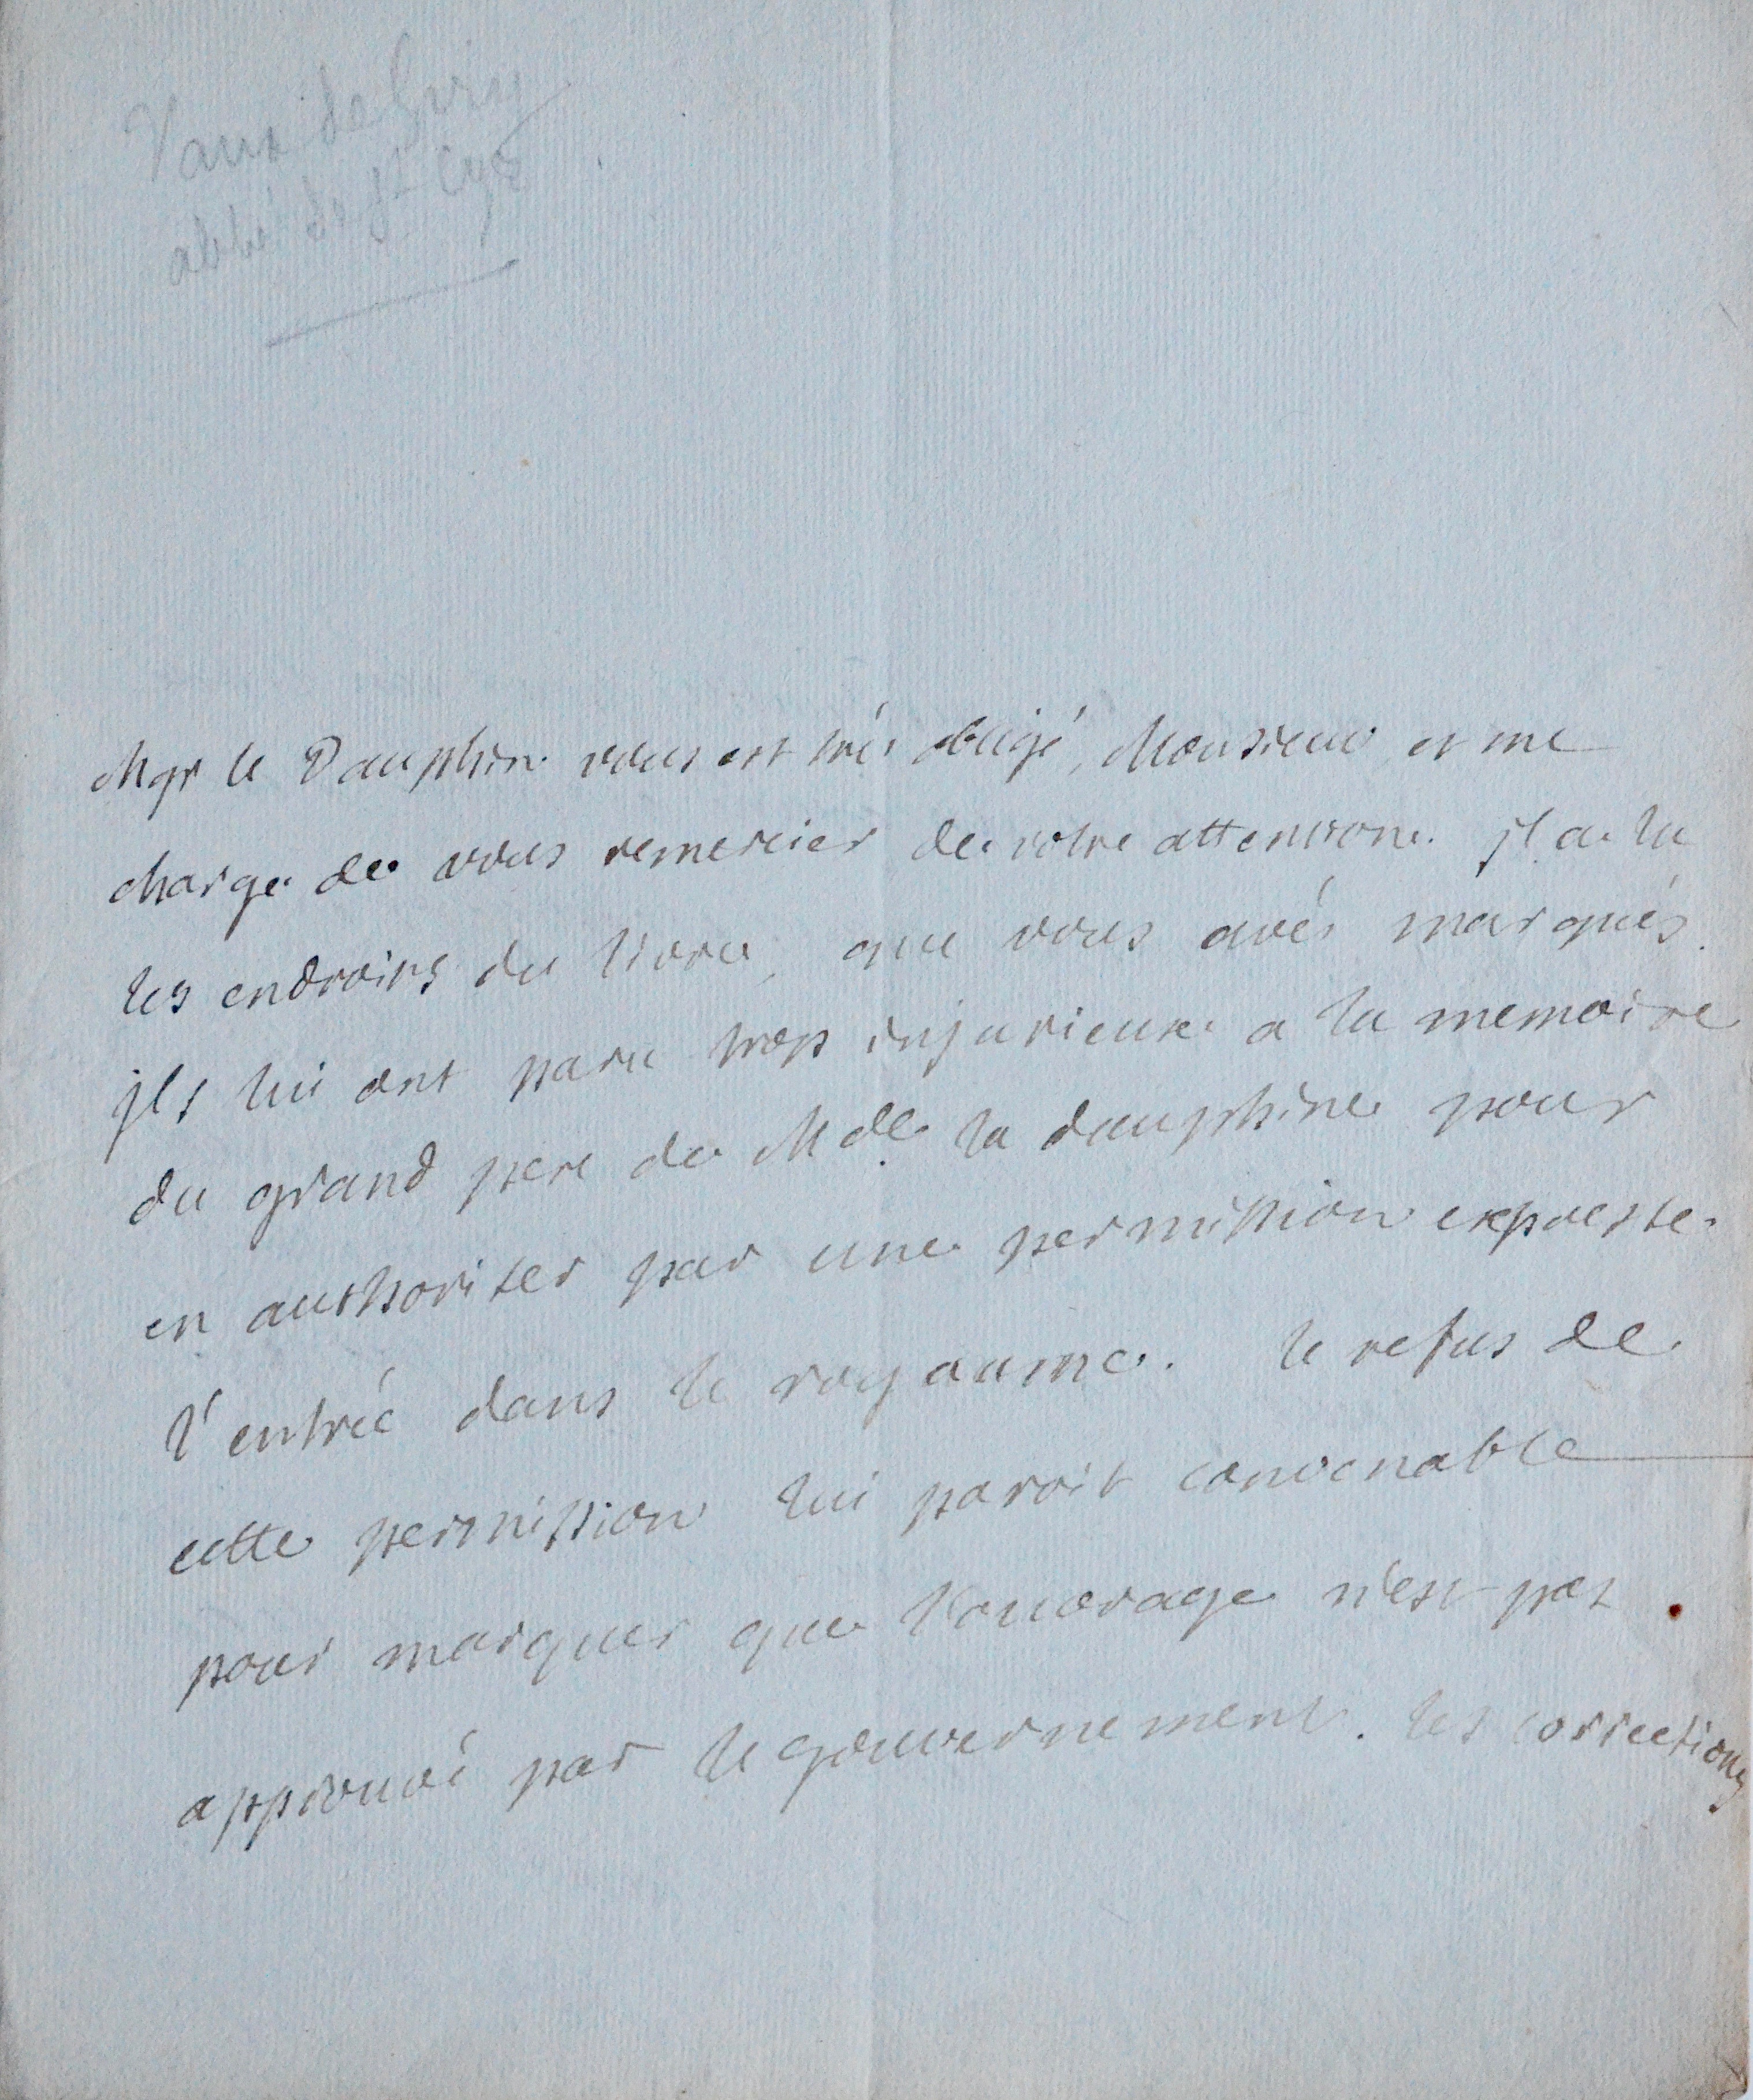 Vaux de Giry
abbé de St Cyr
Mgr le Dauphin vous est trés obligé, Monsieur, et me
charge de vous remercier de votre attention. jl a lu
les endroits du livre, que vous avés marqués.
jls lui ont paru trop injurieux a la memoire
du grand pere de Mde la dauphine pour
en authoriser par une permission expresse
l'entrée dans le royaume. le refus de
cette permission lui paroit convenable
pour marquer que l'ouvrage n'est pas
approuvé par le gouvernement. les corrections